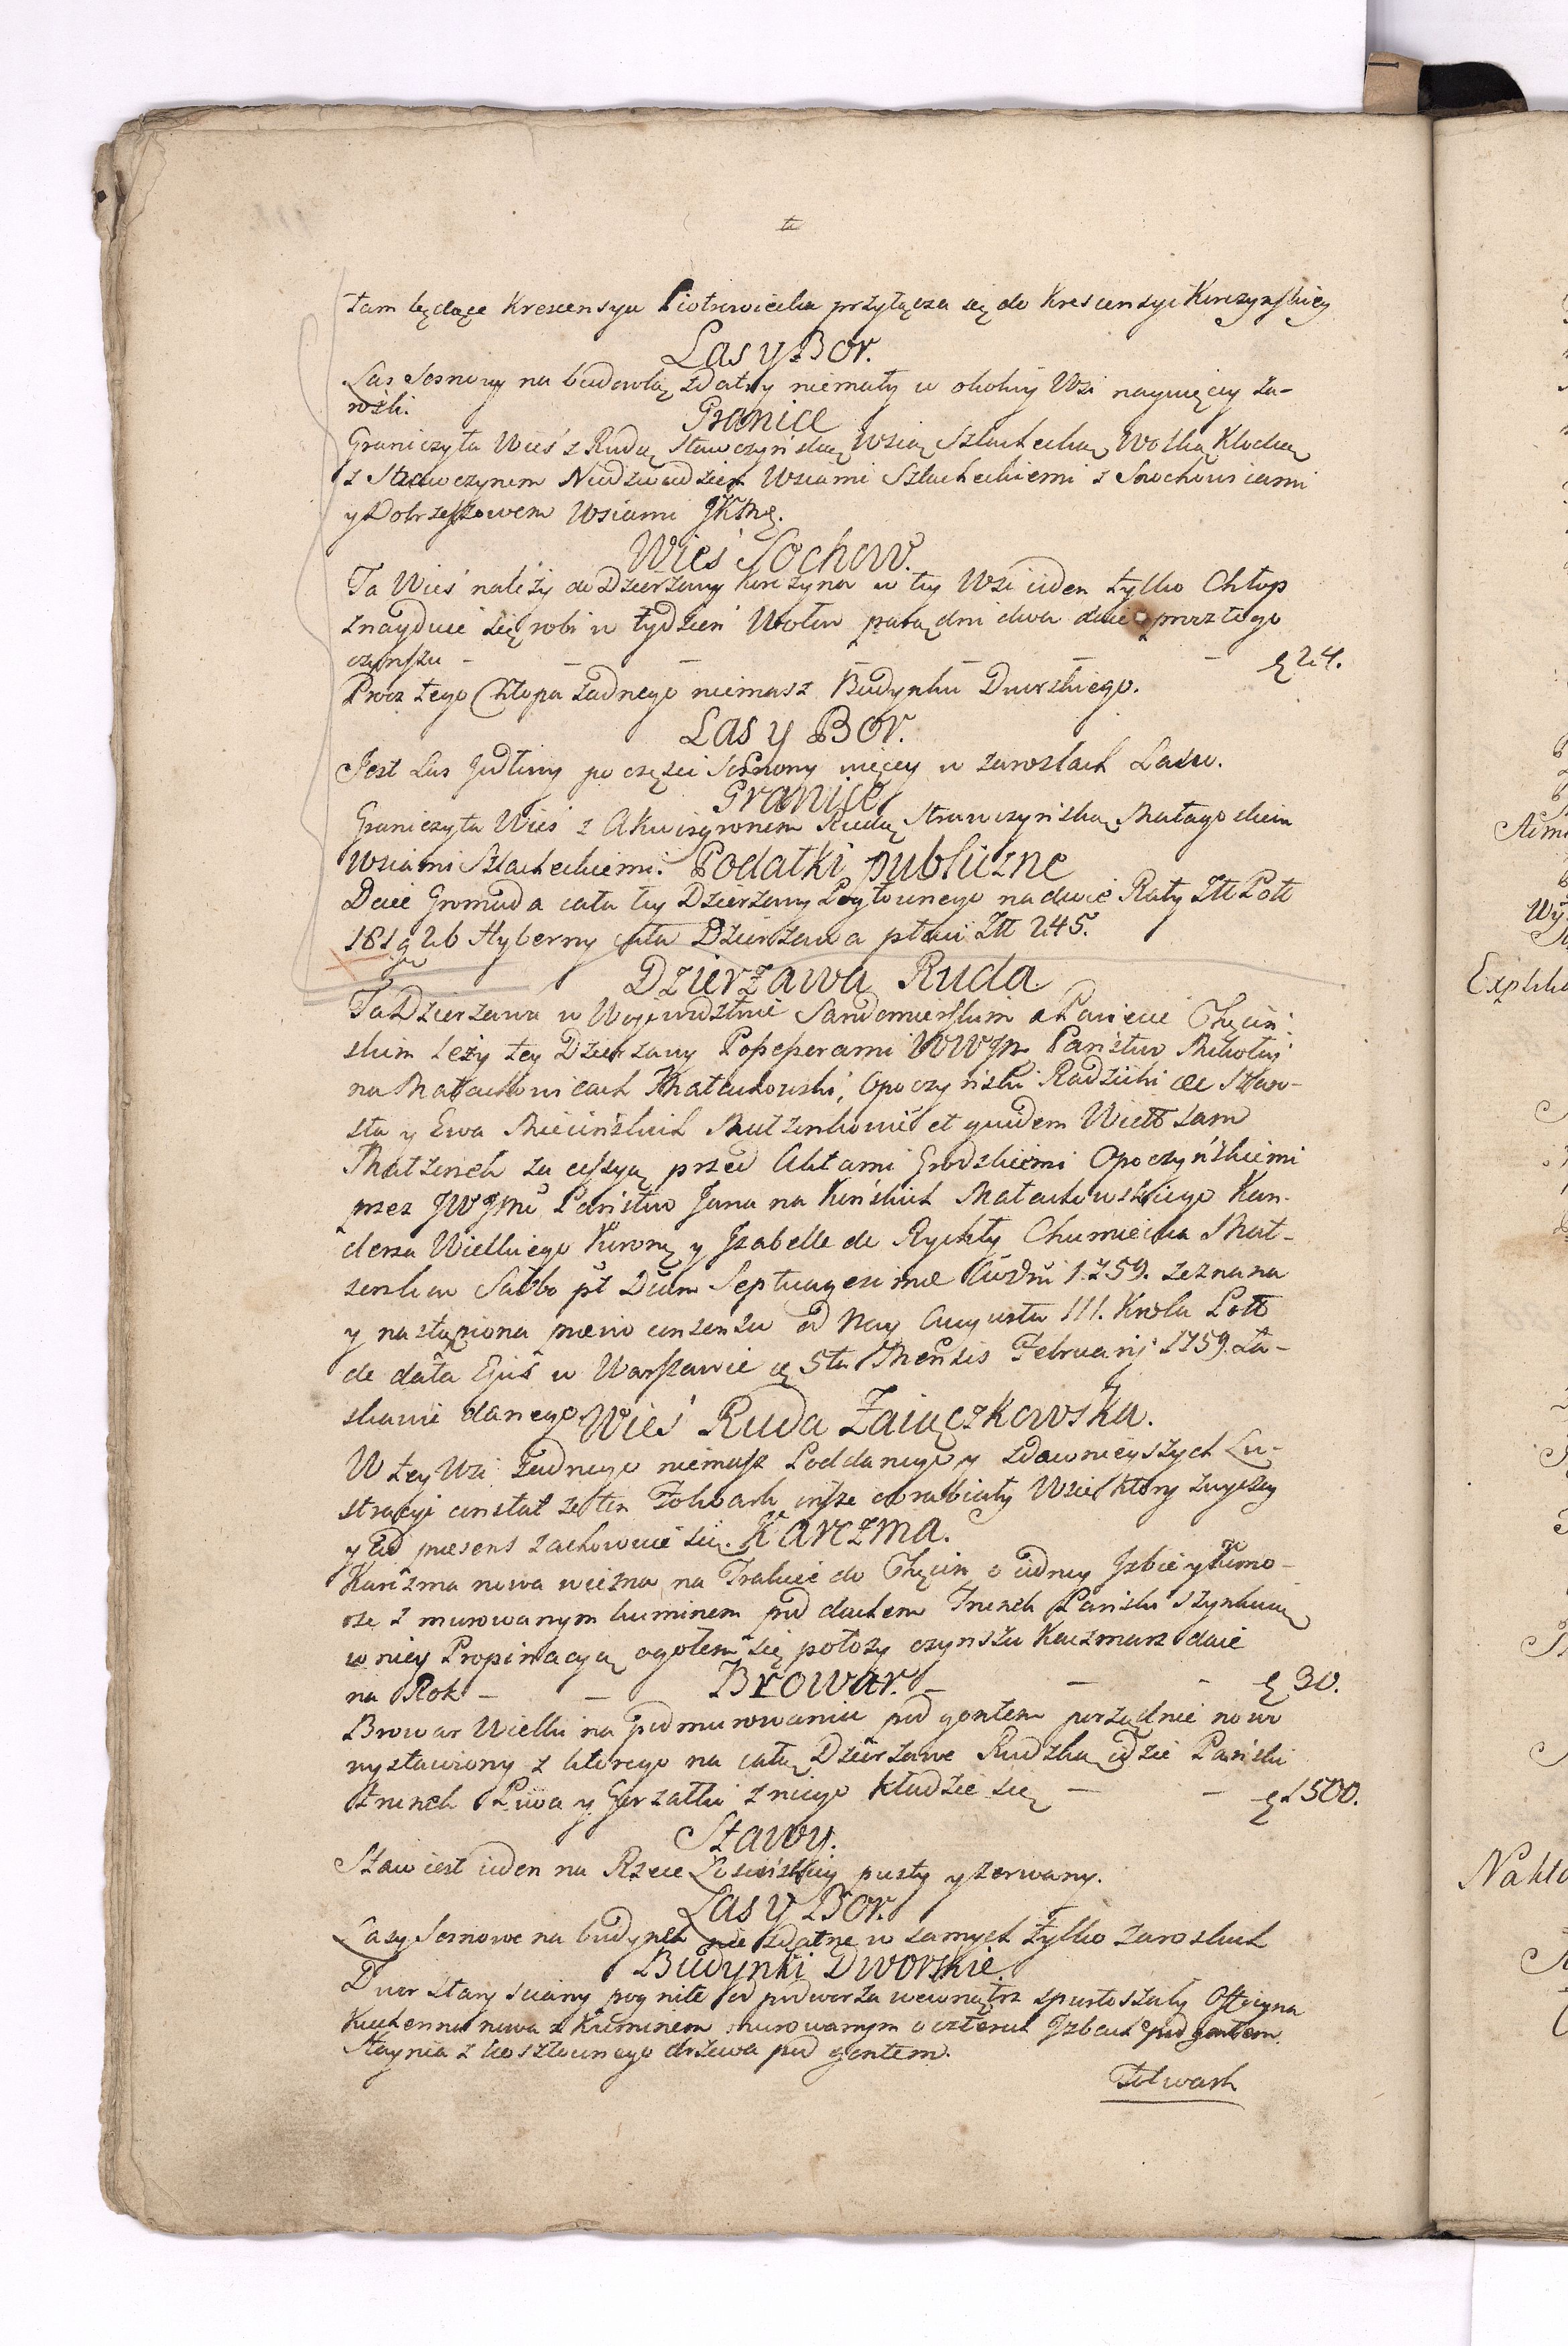 tam będące Krescensya Piotrowicka przyłącza się do Krescensyi Korczyńskiey
Las y Bor.
Las Sosnowy na budowlą zdatny niemały w okolicy Wsi naywięcy za-
rośli.
Granice
Graniczy ta Wieś z Rudą Stawczyńską Wsią Szlachecką Wolką Klucką
z Strawczynem Niedzwiedziem Wsiami Szlacheckiemi z Snochowicami
y Dobrzeszowem Wsiami JKMę.
Wieś Sochow.
Ta Wieś należy do Dzierzawy Korczyna w tey Wsi ieden tylko Chłop
znayduie się robi w tydzień Wołu parą dni dwa daie oprocz tego
czynszu - - - - - - - ę 24.
Procz tego Chłopa żadnego niemasz Budynku Dworskiego.
Las y Bor.
Jest Las Jodłowy po części Sosnowy więcey w zaroslach Lasu.
Granice
Graniczy ta Wieś z Akwizgronem Rudą Strawczyńską Małagoskiem
Wsiami Szlacheckiemi. Podatki publiczne
Daie Gromada cała tey Dzierzawy Pogłownego na dwie Raty Złł Poll
181 g 26 Hyberny cała Dzierzawa płaci Złł 245.
Dzierzawa Ruda
Ta Dzierzawa w Wojewodztwie Sandomierskim a Powiecie Chęciń-
skim leży tey Dzierzawy Possessorami WWJP. Państwo Mikołaj
na Małachowicach Małachowski, Opoczyński Radzicki &c Staro-
sta y Ewa Miecińskich Małzonkowie et quidem Wielb sam
Małzonek za cessyą przed Aktami Grodzkiemi Opoczyńskiemi
przez JWJmć Państwo Jana na Końskich Małachowskiego Kan-
clerza Wielkiego Koronę y Izabelle de Rychty Chumiecka Mał-
zonków Sabbo pt Dum Septuagesimae Añ Dni 1759. zeznana
y nastąpiona mero consensu od Nay Augusta III. Krola Poll
de data Ejus w Warszawie ę 5ta Mensis Februarij 1759. ła-
skawie danego. Wieś Ruda Zaiączkowska.
W tey Wsi żadnego niemasz Poddanego y zdawnieyszych Lu-
stracyi constat że ten Folwark insze obrabiały Wsie ktory zwyczay
y ad praesens zachowuie się. Karczma.
Karczma nowa wiezna na Trakcie do Chęcin o iedney Jzbie y Komo-
rze z murowanym kominem pod dachem Trunek Pański szynkuią
w niey Propinacyą ogołem się położy czynszu Kaczmarz daie
na Rok - - - - - ę 30.
Browar.
Browar Wielki na podmurowaniu pod gontem porządnie nowo
wystawiony z ktorego na całą Dzierzawe Rudzką idzie Pański
trunek Piwa y Gorzałki z niego kładzie się - - ę 1500.
Stawy.
Staw iest ieden na Rzece Łosieńskiey pusty y zerwany.
Las y Bor.
Lasy Sosnowe na budynek nie zdatne w samych tylko zaroslach
Budynki Dworskie.
Dwor stary sciany pognite od podworza wewnątrz spustoszały Officyna
Kuchenna nowa z Kominem murowanym o czterech Jzbach pod gontem.
Staynia z kosztownego drzewa pod gontem.
Folwark